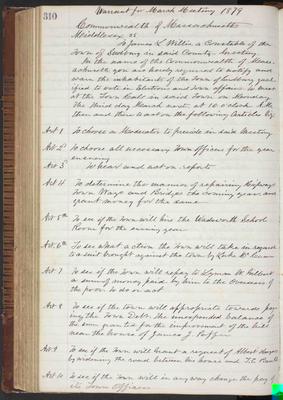 310
Warrant for March Meeting 1879
Commonwealth of Massachusetts
Middlesex ss
To James L Willis a Constable of the
Town of Sudbury in said County Greeting
In the name of the Commonwealth of Massa-
chusetts you are hereby required to notify and
warn the inhabitants of the Town of Sudbury quali
fied to vote in Elections and Town affairs to meet
at the Town Hall in said Town on Monday
the third day March next at 10 o'clock A.M.
then and there to act on the following Articles Viz
Art 1 To choose a Moderator to preside in said Meeting
Art 2 To choose all necessary Town officers for the year
ensuing
Art 3 To hear and act on reports
Art 4 To determine the manner of repairing Highways
Town Ways and Bridges the coming year, and
grant money for the same
Art 5th To see if the Town will hire the Wadsworth School
Room for the ensuing year
Art. 6th To see what action the Town will take in regard
to a suit brought against the town by
Art 7 To see if the Town will repay to Lyman W
a sum of money paid by him to the Overseers of
the poor. to do or act
Art 8 To see if the town will appropriate towards pay
ing the Town Debt. the unexpended balance of
the sum granted for the improvement of the hill
near the house of James J. Puffer
Art 9 To see if the Town will grant a request of Albert
by widening the road between his house and
Art 10 To see if the Town will in any way change the pay of
its Town Officers